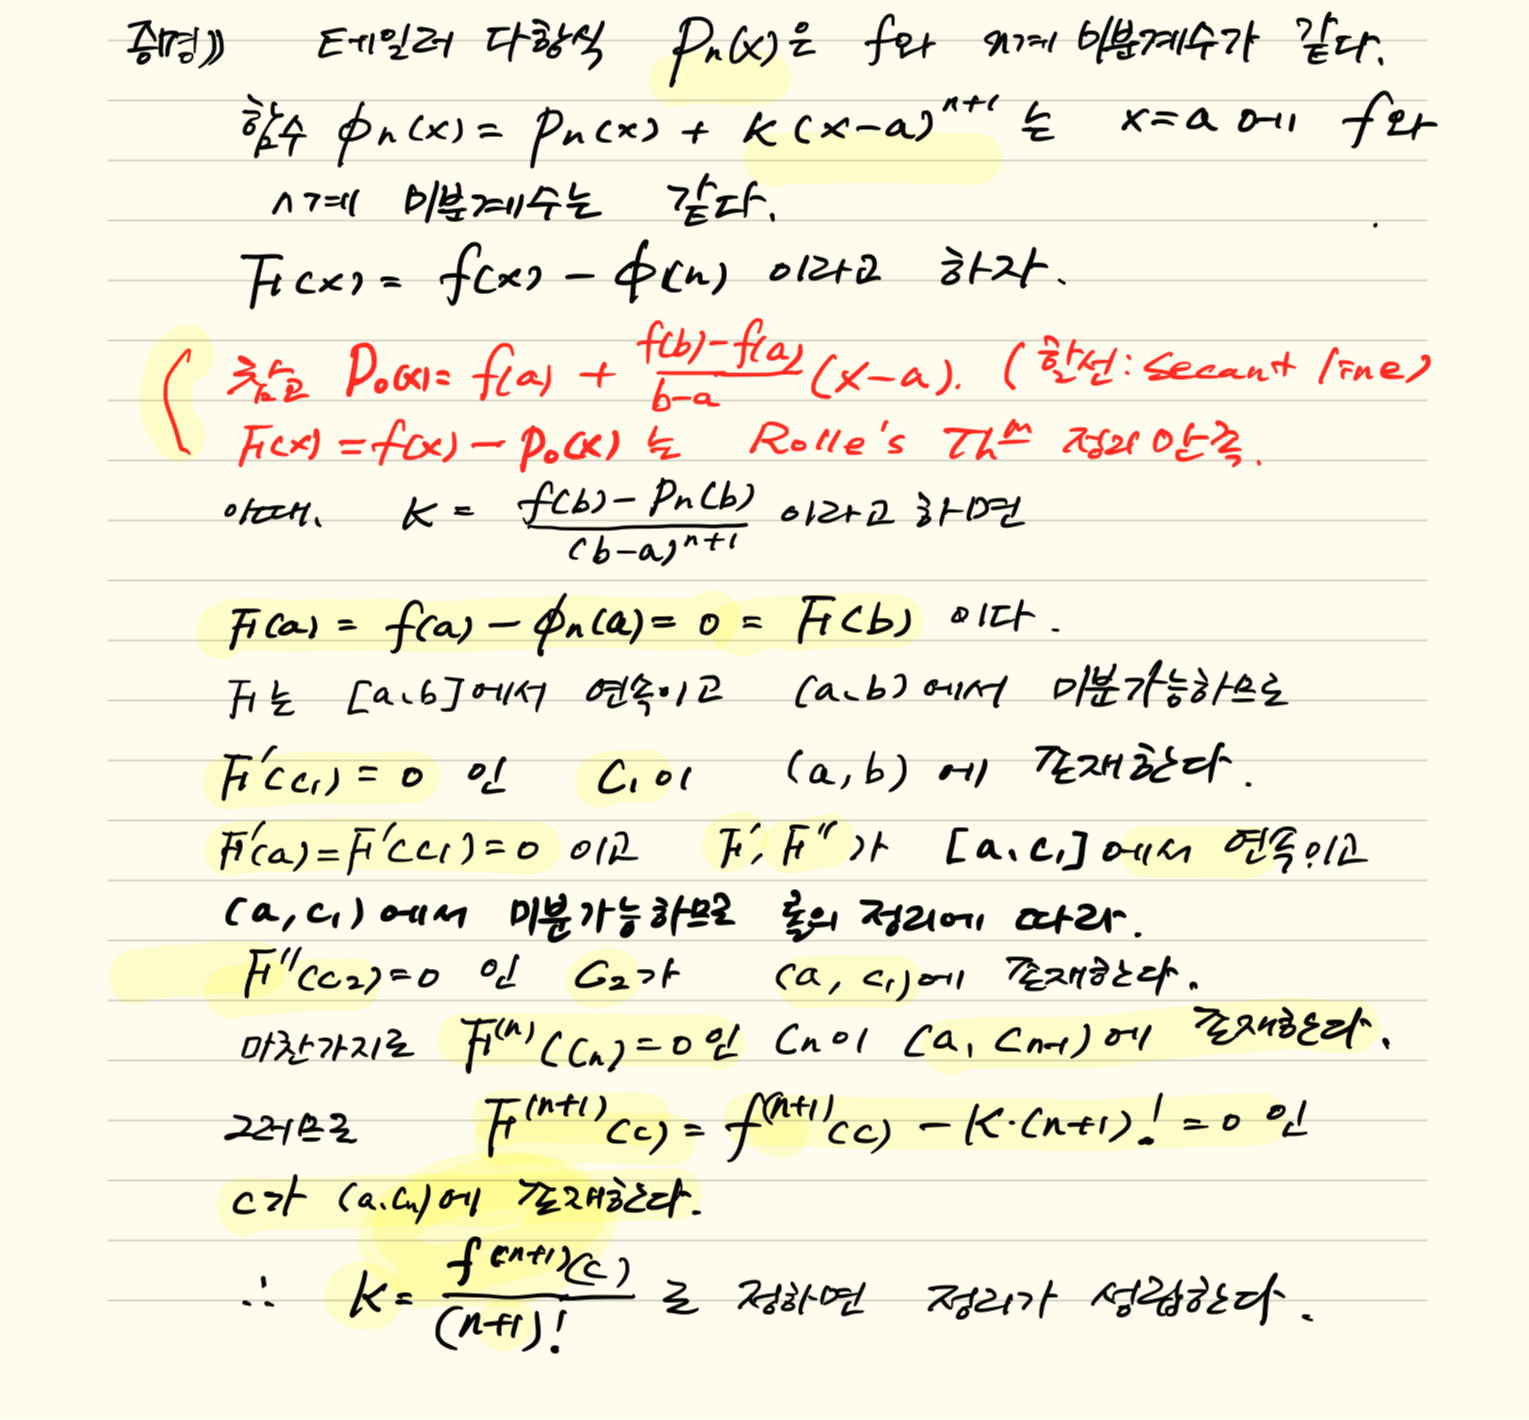 증명》 테일러 다항식 Pn(x)은 f와 n계 미분계수가 같다.
함수 ϕn(x) = Pn(x) + K(x-a)^{n+1} 는 x=a 에 f와
n계 미분계수는 같다.
F(x) = f(x) - ϕ(n) 이라고 하자.
참고 P₀(x) = f(a) + \frac{f(b)-f(a)}{b-a}(x-a). (할선: Secant line)
F(x) = f(x) - P₀(x) 는 Rolle's Th^m 정리 만족.
이때, K = \frac{f(b) - Pn(b)}{(b-a)^{n+1}} 이라고 하면
F(a) = f(a) - ϕn(a) = 0 = F(b) 이다.
F는 [a, b]에서 연속이고 (a, b)에서 미분가능하므로
F'(c₁) = 0 인 C₁이 (a, b)에 존재한다.
F'(a) = F'(c₁) = 0 이고 F', F''가 [a, c₁]에서 연속이고
(a, c₁)에서 미분가능하므로 롤의 정리에 따라.
F''(c₂) = 0 인 C₂가 (a, c₁)에 존재한다.
마찬가지로 F^{(n)}(Cn) = 0인 Cn이 (a, Cn-1)에 존재한다.
그러므로 F^{(n+1)}(c) = f^{(n+1)}(c) - K·(n+1)! = 0 인
c가 (a, Cn)에 존재한다.
∴ K = \frac{f^{(n+1)}(c)}{(n+1)!} 로 정하면 정리가 성립한다.